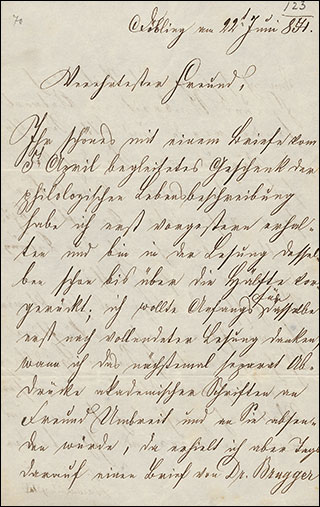 70
123
Döbling am 22t Juni 851.
Verehrtester Freund,
Ihr schönes mit einem Briefe vom
3t April begleitetes Geschenk der
philologischen Lebensbeschreibung
habe ich erst vorgestern erhal-
ten und bin in der Lesung dessel-
ben schon bis über die Hälfte vor-
gerückt; ich wollte Anfangs für dasselbe
erst nach vollendeter Lesung danken
wann ich das nächstemal separat Ab-
drücke akademischer Schriften an
Freund Umbreit und an Sie absen-
den würde, da erhielt ich aber Tags
darauf einen Brief von Dr. Brugger